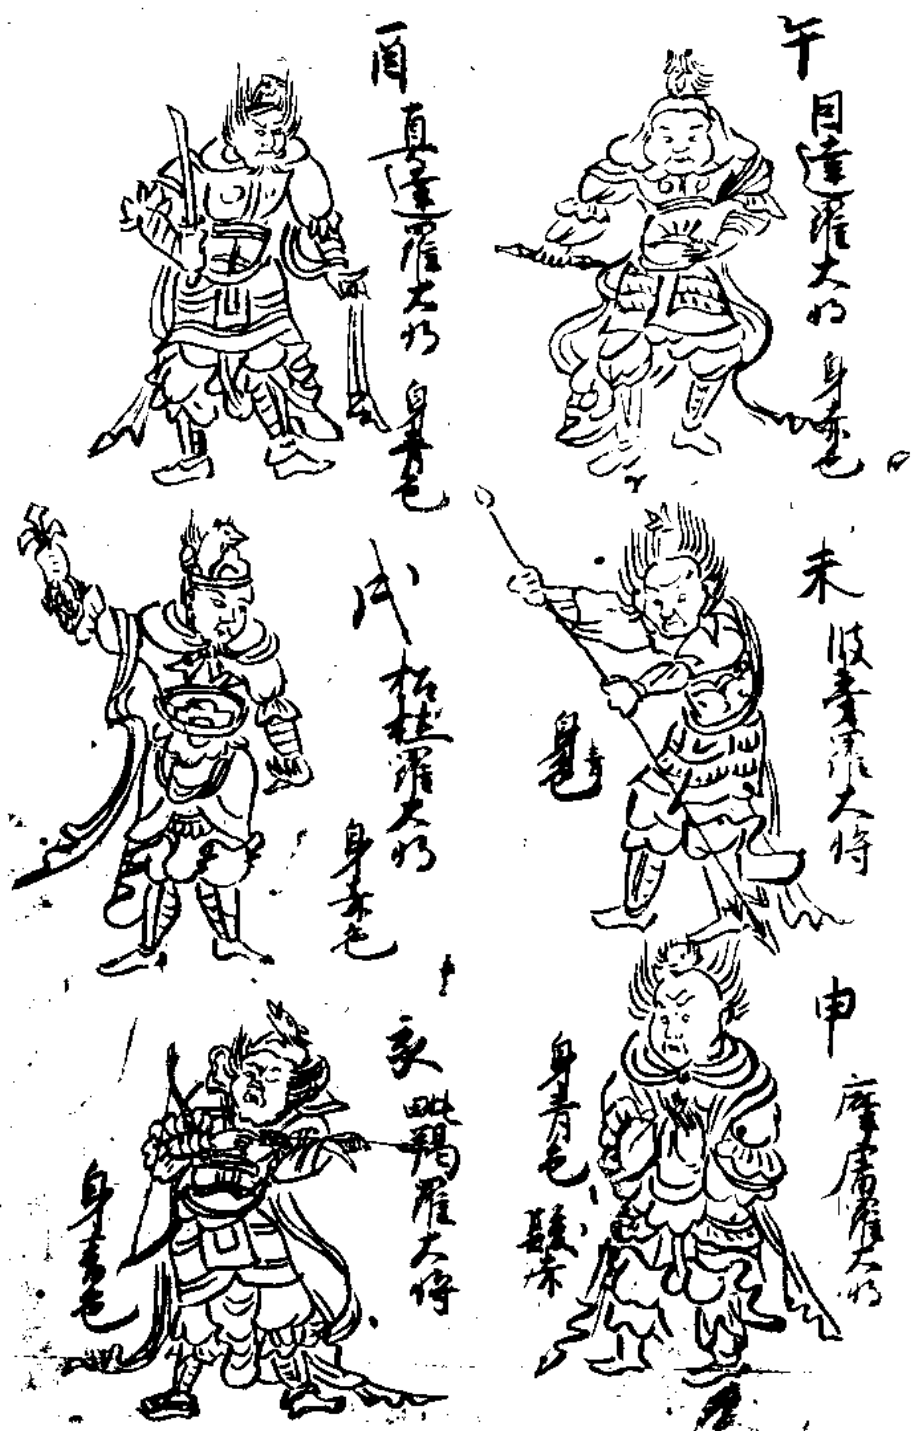 午
因達羅大将
身赤色
未
波夷羅大将
身青色
申
摩虎羅大将
身青色
髪赤
酉
真達羅大将
身青色
戌
招杜羅大将
身赤色
亥
毗羯羅大将
身青色